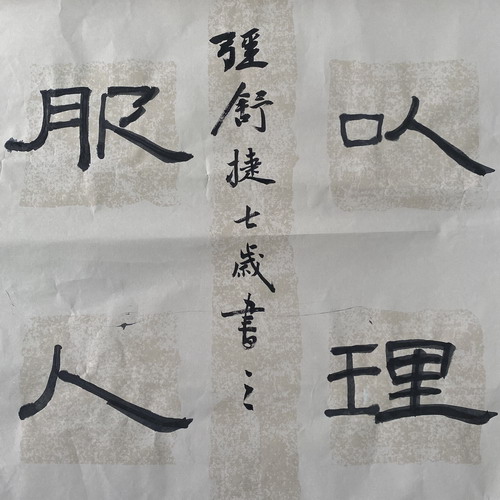 㕥理
服人
舒捷七歲書之